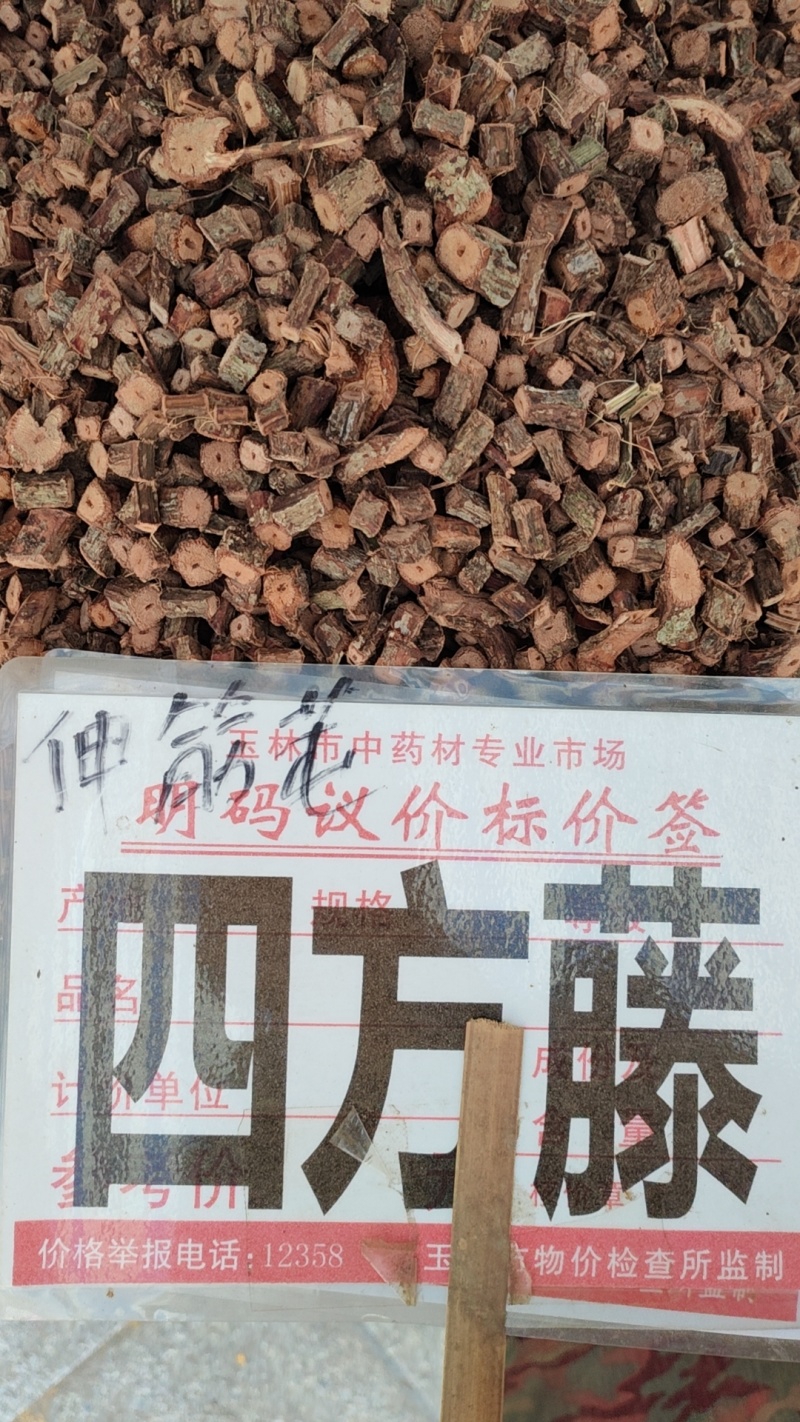 伸筋
玉林市中药材专业市场
明码议价标价签
四方藤
产 规格
品名
计价单位
参考价
价格举报电话:12358 玉 市物价检查所监制